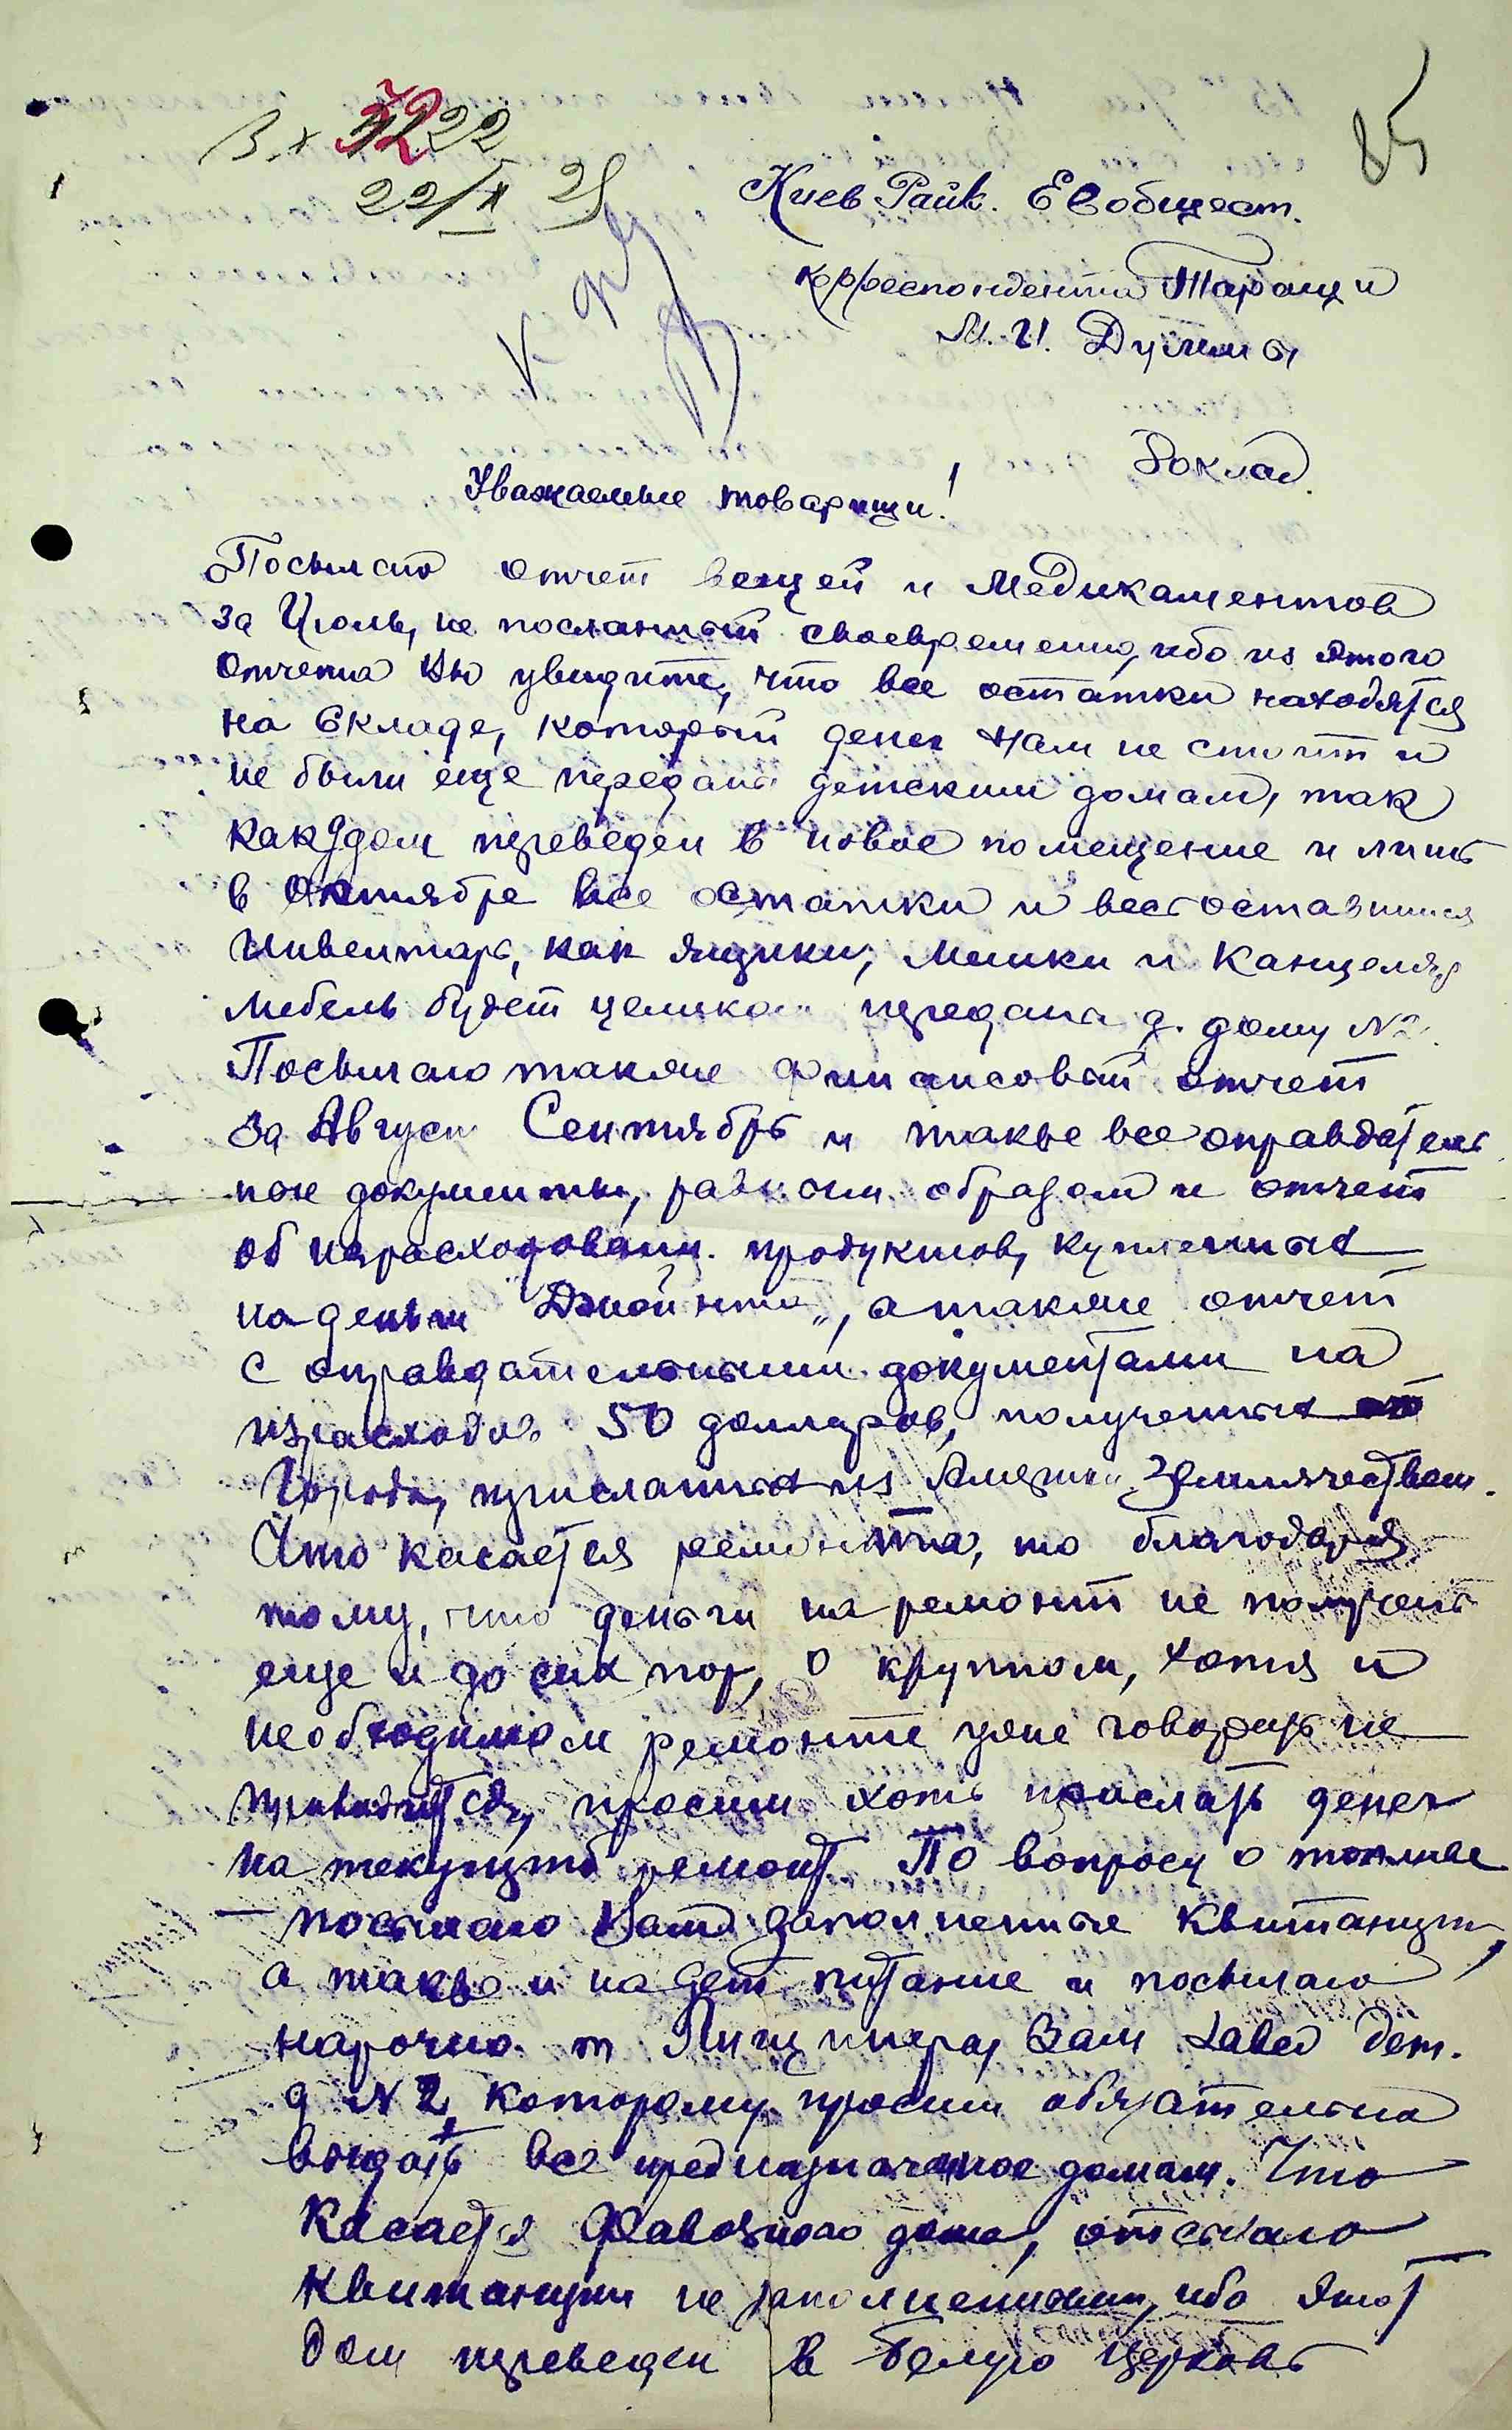 85
Вх 3222
22/X 25
Киев Райк. Евобщест.
корреспондента Таращи
М. И. Дулин
Доклад.
Уважаемые товарищи!
Посылаю отчет вещей и медикаментов
за Июль, не посланный своевременно, ибо из этого
отчета Вы увидите, что все остатки находятся
на Складе, который денег Нам не стоит и
не были еще переданы детским домам, так
как дом переведен в новое помещение и лишь
в октябре все остатки и весь оставшийся
Инвентарь, как ящики, мешки и Канцеляр
мебель будет целиком передана д. дому №2.
Посылаю также финансовый отчет
за Август Сентябрь и также все оправдатель
ные документы, образом и отчет
об израсходовании. продуктов, купленных
на деньги Джойнта„, а также отчет
с оправдательными документами на
израсходов 50 долларов, полученных
присланных из Америк. Землячеством.
Что касается ремонта, то благодаря
тому, что деньги на ремонт не получены
еще и до сих пор, о крупном, хотя и
необходимом ремонте уже говорить не
приходится, просим хоть прислать денег
на текущий ремонт. По вопросу о топливе
— посылаю Вам заполненные квитанции,
а также и на дет питание и посылаю
нарочно т Вам Завед дет.
д № 2, которому просим обязательно
выдать все предназначенное домам. Что
касается дома, отсылаю
квитанции не заполненными, ибо этот
дом переведен в Белую Церковь